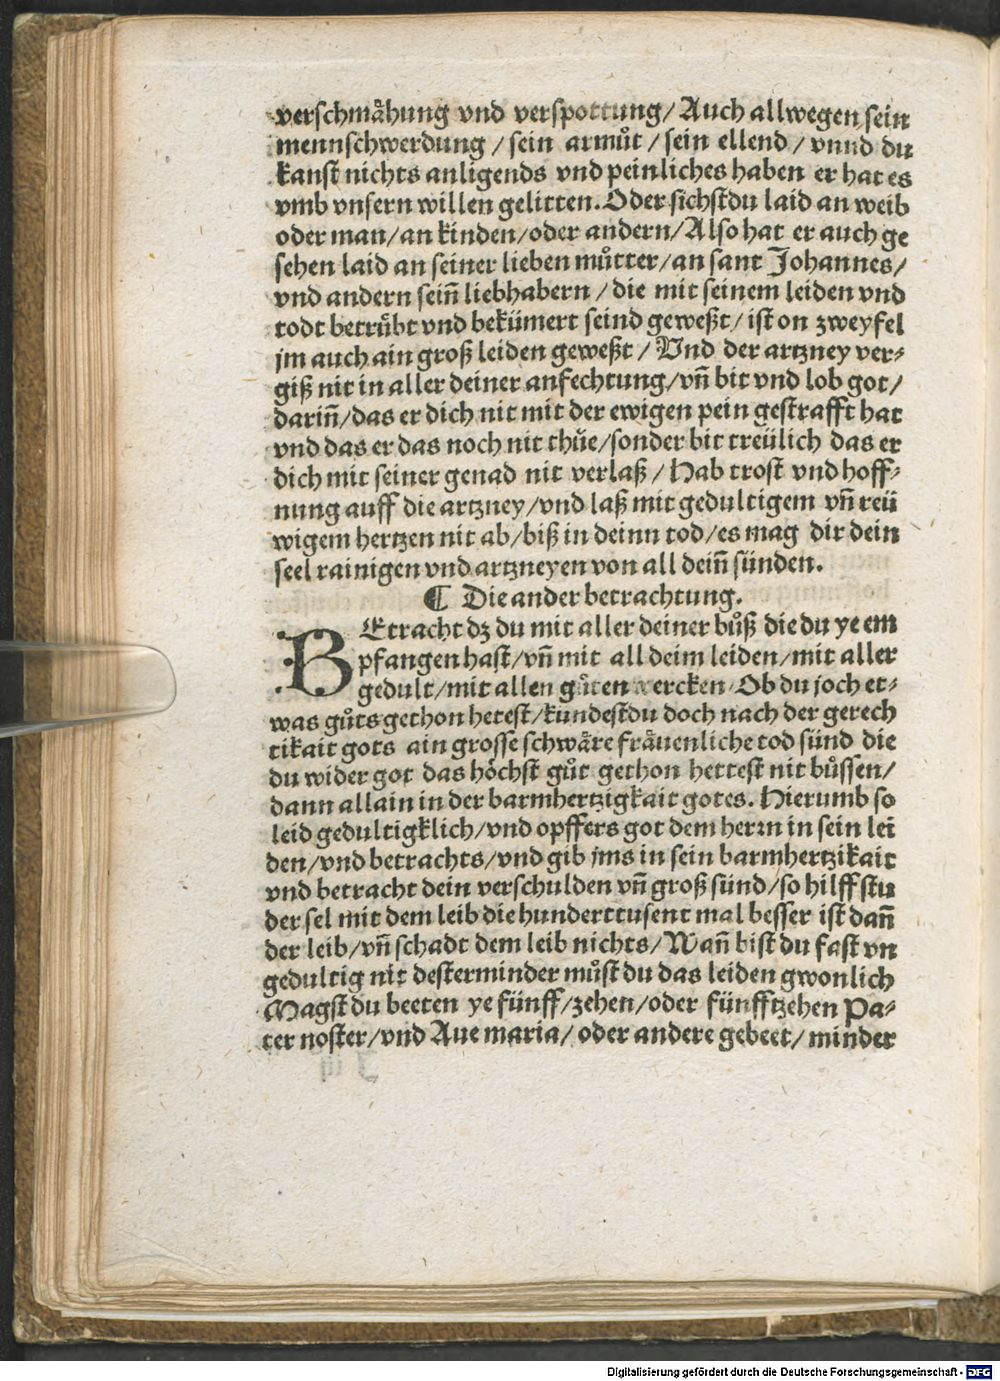 verschmåhung vnd verspottung/ Auch allwegen sein
mennschwerdung / sein armůt / sein ellend / vnnd du
kanst nichts anligends vnd peinliches haben er hat es
vmb vnsern willen gelitten. Oder sichstdu laid an weib
oder man/ an kinden/ oder andern/ Also hat er auch ge
sehen laid an seiner lieben můtter/ an sant Johannes/
vnd andern sein̄ liebhabern / die mit seinem leiden vnd
todt betrůbt vnd bekümert seind geweßt/ ist on zweyfel
jm auch ain groß leiden geweßt / Vnd der artzney ver⸗
giß nit in aller deiner anfechtung/ vn̄ bit vnd lob got/
darin̄/ das er dich nit mit der ewigen pein gestrafft hat
vnd das er das noch nit thůe/ sonder bit treülich das er
dich mit seiner genad nit verlaß / Hab trost vnd hoff⸗
nung auff die artzney/ vnd laß mit gedultigem vn̄ reü
wigem hertzen nit ab/ biß in deinn tod/ es mag dir dein
seel rainigen vnd artzneyen von all dein̄ sünden.
¶ Die ander betrachtung.
BEtracht dz du mit aller deiner bůß die du ye em
pfangen hast/ vn̄ mit all deim leiden/ mit aller
gedult/ mit allen gůten wercken/ Ob du joch et⸗
was gůts gethon hetest/ kündestdu doch nach der gerech
tikait gots ain grosse schwåre fråuenliche tod sünd die
du wider got das höchst gůt gethon hettest nit bůssen/
dann allain in der barmhertzigkait gotes. Hierumb so
leid gedultigklich/ vnd opffers got dem herrn in sein lei
den/ vnd betrachts/ vnd gib jms in sein barmhertzikait
vnd betracht dein verschulden vn̄ groß sünd/ so hilffstu
der sel mit dem leib die hunderttusent mal besser ist dan̄
der leib/ vn̄ schadt dem leib nichts/ Wan̄ bist du fast vn
gedultig nit desterminder můst du das leiden gwonlich
Magst du beeten ye fünff/ zehen/ oder fünfftzehen Pa⸗
ter noster/ vnd Aue maria/ oder andere gebeet/ minder
Digitalisierung gefördert durch die Deutsche Forschungsgemeinschaft - DFG